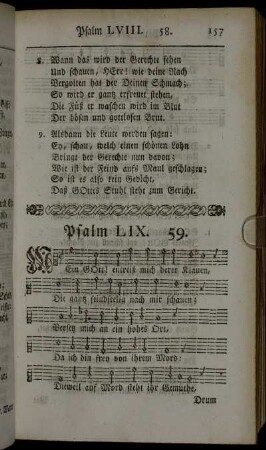 Psalm LVIII. 58. 157
8. Wann das wird der Gerechte sehen
Und schauen, HErr! wie deine Rach
Vergolten hat der Deinen Schmach;
So wird er gantz erfreuet stehen,
Die Füß er waschen wird im Blut
Der bösen und gottlosen Brut.
9. Alsdann die Leute werden sagen:
Ey, schau, welch einen schönen Lohn
Bringt der Gerechte nun davon;
Wie ist der Feind aufs Maul geschlagen;
So ist es also kein Gedicht,
Daß GOttes Stuhl steht zum Gericht.
Psalm LIX. 59.
MEin GOtt! entreiß mich derer Klauen,
Die gantz feindselig nach mir schauen;
Versetz mich an ein hohes Ort,
Da ich bin frey von ihrem Mord:
Dieweil auf Mord steht ihr Gemüthe,
Drum